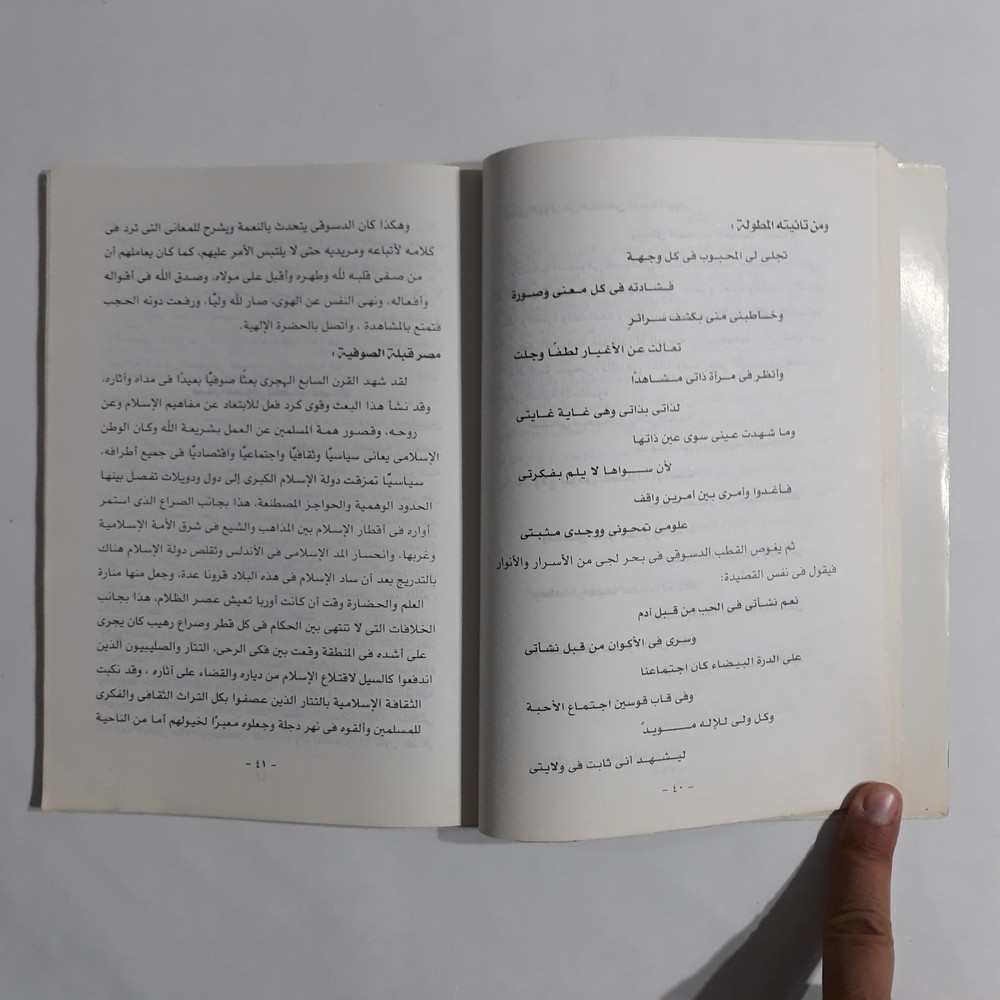 ومن تائيته المطولة :
تجلى لى المحبوب فى كل وجهة
فشادته فى كل معنى وصورة
وخاطبنى منى بكشف سرائر
تعالت عن الأغيار لطفًا وجلت
وأنظر فى مرأة ذاتى مشاهدًا
لذاتى بذاتى وهى غاية غايتى
وما شهدت عينى سوى عين ذاتها
لأن سواها لا يلم بفكرتى
فأغدوا وأمرى بين امرين واقف
علومى تمحونى ووجدى مثبتى
ثم يغوص القطب الدسوقى فى بحر لجى من الأسرار والأنوار
فيقول فى نفس القصيدة:
نعم نشأتى فى الحب من قبل أدم
وسرى فى الأكوان من قبل نشأتى
على الدرة البيضاء كان اجتماعنا
وفى قاب قوسين اجتماع الأحبة
وكل ولى للإله مويدً
ليشهد انى ثابت فى ولايتى
- ٤٠ -
وهكذا كان الدسوقى يتحدث بالنعمة ويشرح للمعانى التى ترد فى
كلامه لأتباعه ومريديه حتى لا يلتبس الأمر عليهم، كما كان يعاملهم أن
من صفى قلبه لله وطهره وأقبل على مولاه، وصدق الله فى أقواله
وأفعاله، ونهى النفس عن الهوى، صار لله وليًا، ورفعت دونه الحجب
فتمتع بالمشاهدة ، واتصل بالحضرة الإلهية.
مصر قبلة الصوفية :
لقد شهد القرن السابع الهجرى بعثًا صوفيًا بعيدًا فى مداه وآثاره،
وقد نشأ هذا البعث وقوى كرد فعل للابتعاد عن مفاهيم الإسلام وعن
روحه، وقصور همة المسلمين عن العمل بشريعة الله وكان الوطن
الإسلامى يعانى سياسيًا وثقافيًا واجتماعيًا واقتصاديًا فى جميع أطرافه،
سياسيًا تمزقت دولة الإسلام الكبرى إلى دول ودويلات تفصل بينها
الحدود الوهمية والحواجز المصطنعة، هذا بجانب الصراع الذى استمر
أواره فى أقطار الإسلام بين المذاهب والشيع فى شرق الأمة الإسلامية
وغربها، وانحسار المد الإسلامى فى الأندلس وتقلص دولة الإسلام هناك
بالتدريج بعد أن ساد الإسلام فى هذه البلاد قرونا عدة، وجعل منها منارة
العلم والحضارة وقت أن كانت أوربا تعيش عصر الظلام، هذا بجانب
الخلافات التى لا تنتهى بين الحكام فى كل قطر وصراع رهيب كان يجرى
على أشده فى المنطقة وقعت بين فكى الرحى، التتار والصليبيون الذين
اندفعوا كالسيل لاقتلاع الإسلام من دياره والقضاء على آثاره ، وقد نكبت
الثقافة الإسلامية بالتتار الذين عصفوا بكل التراث الثقافى والفكرى
للمسلمين وألقوه فى نهر دجلة وجعلوه معبرًا لخيولهم أما من الناحية
- ٤١ -